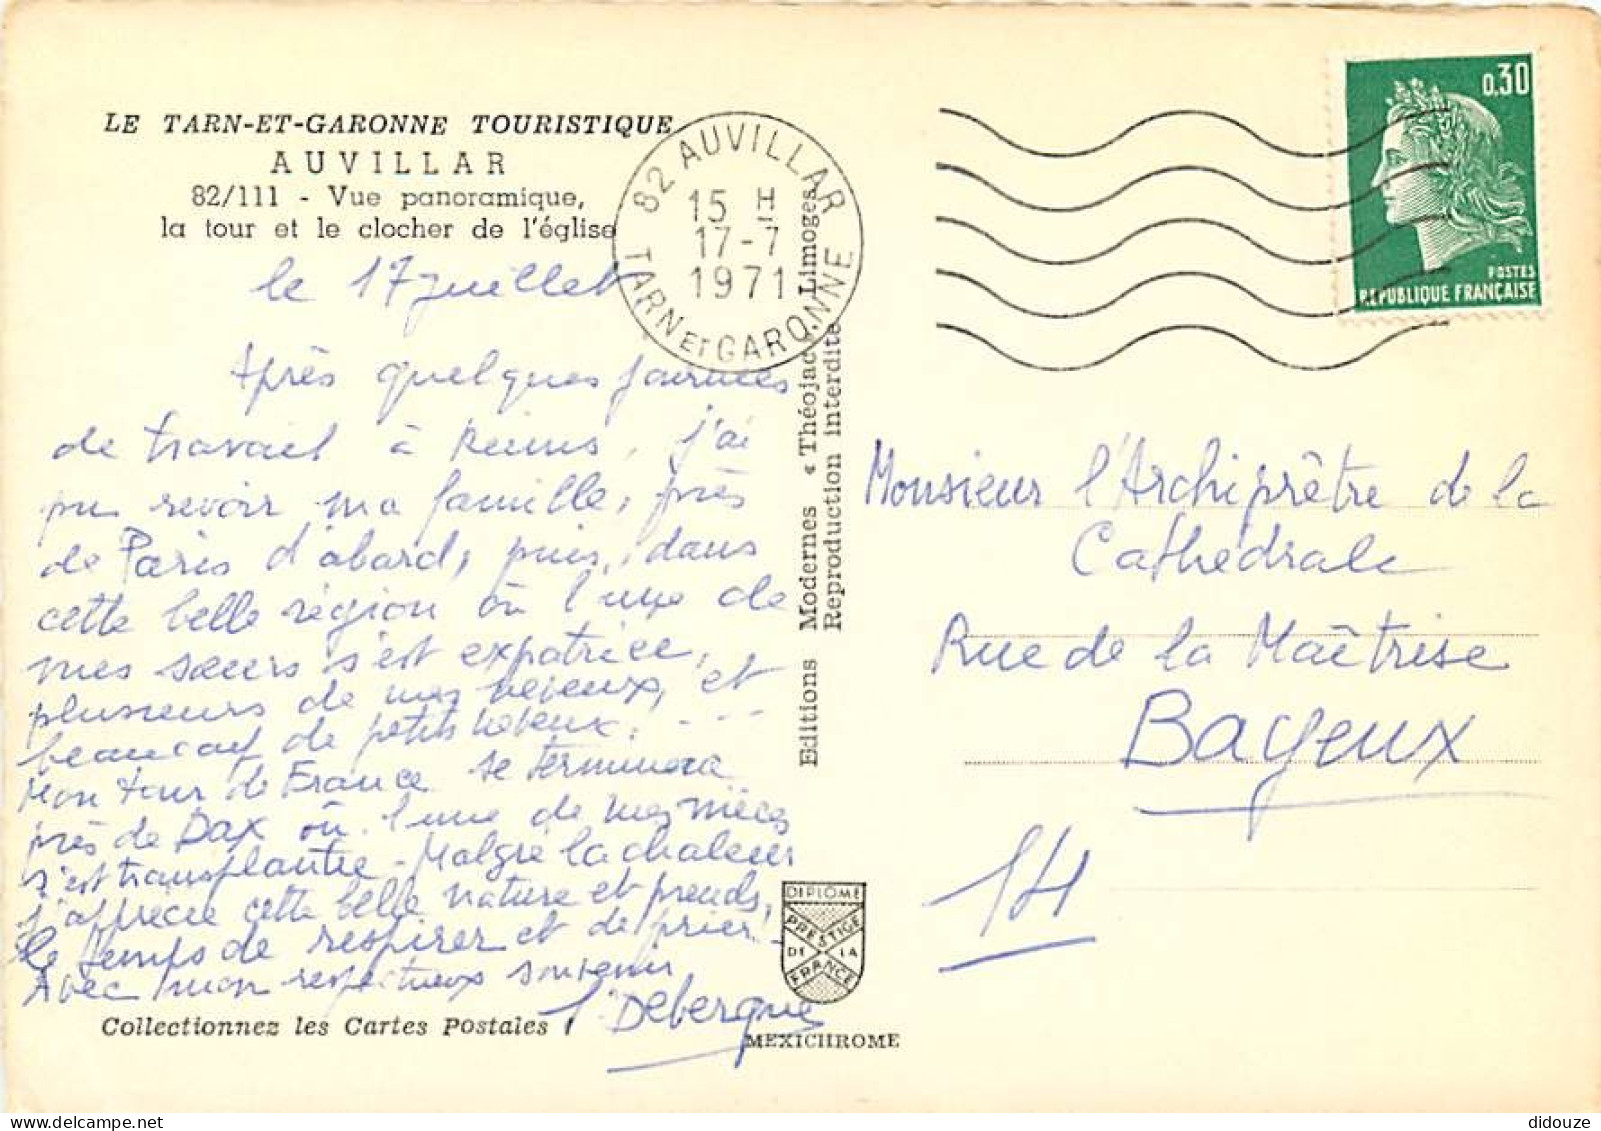 LE TARN-ET-GARONNE TOURISTIQUE
AUVILLAR
82/111 - Vue panoramique,
la tour et le clocher de l'église
le 17 juillet
Après quelques journées
de travail à Reims, j'ai
pu revoir ma famille, près
de Paris d'abord, puis, dans
cette belle région où l'une de
mes sœurs s'est expatriée,
plusieurs de mes neveux, et
beaucoup de petits neveux. - - -
Mon tour de France se terminera
près de Dax où l'une de mes nièces
s'est transplantée - Malgré la chaleur
j'apprécie cette belle nature et prends,
le temps de respirer et de prier -
Avec mon respectueux souvenir
Debergue
Collectionnez les Cartes Postales !
82 AUVILLAR
15 H
17-7
1971
TARN ET GARONNE
Editions Modernes « Théojac », Limoges
Reproduction interdite
DIPLOME
PRESTIGE
DE LA
FRANCE
MEXICHROME
0,30
POSTES
REPUBLIQUE FRANÇAISE
Monsieur l'Archiprêtre de la
Cathedrale
Rue de la Maîtrise
Bayeux
14
didouze